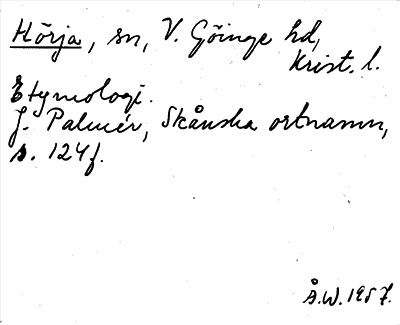 Hörja, sn, V. Göinge hd,
Krist. l.
Etymologi.
J. Palmér, Skånska ortnamn,
s. 124f.
Å.W. 1957.